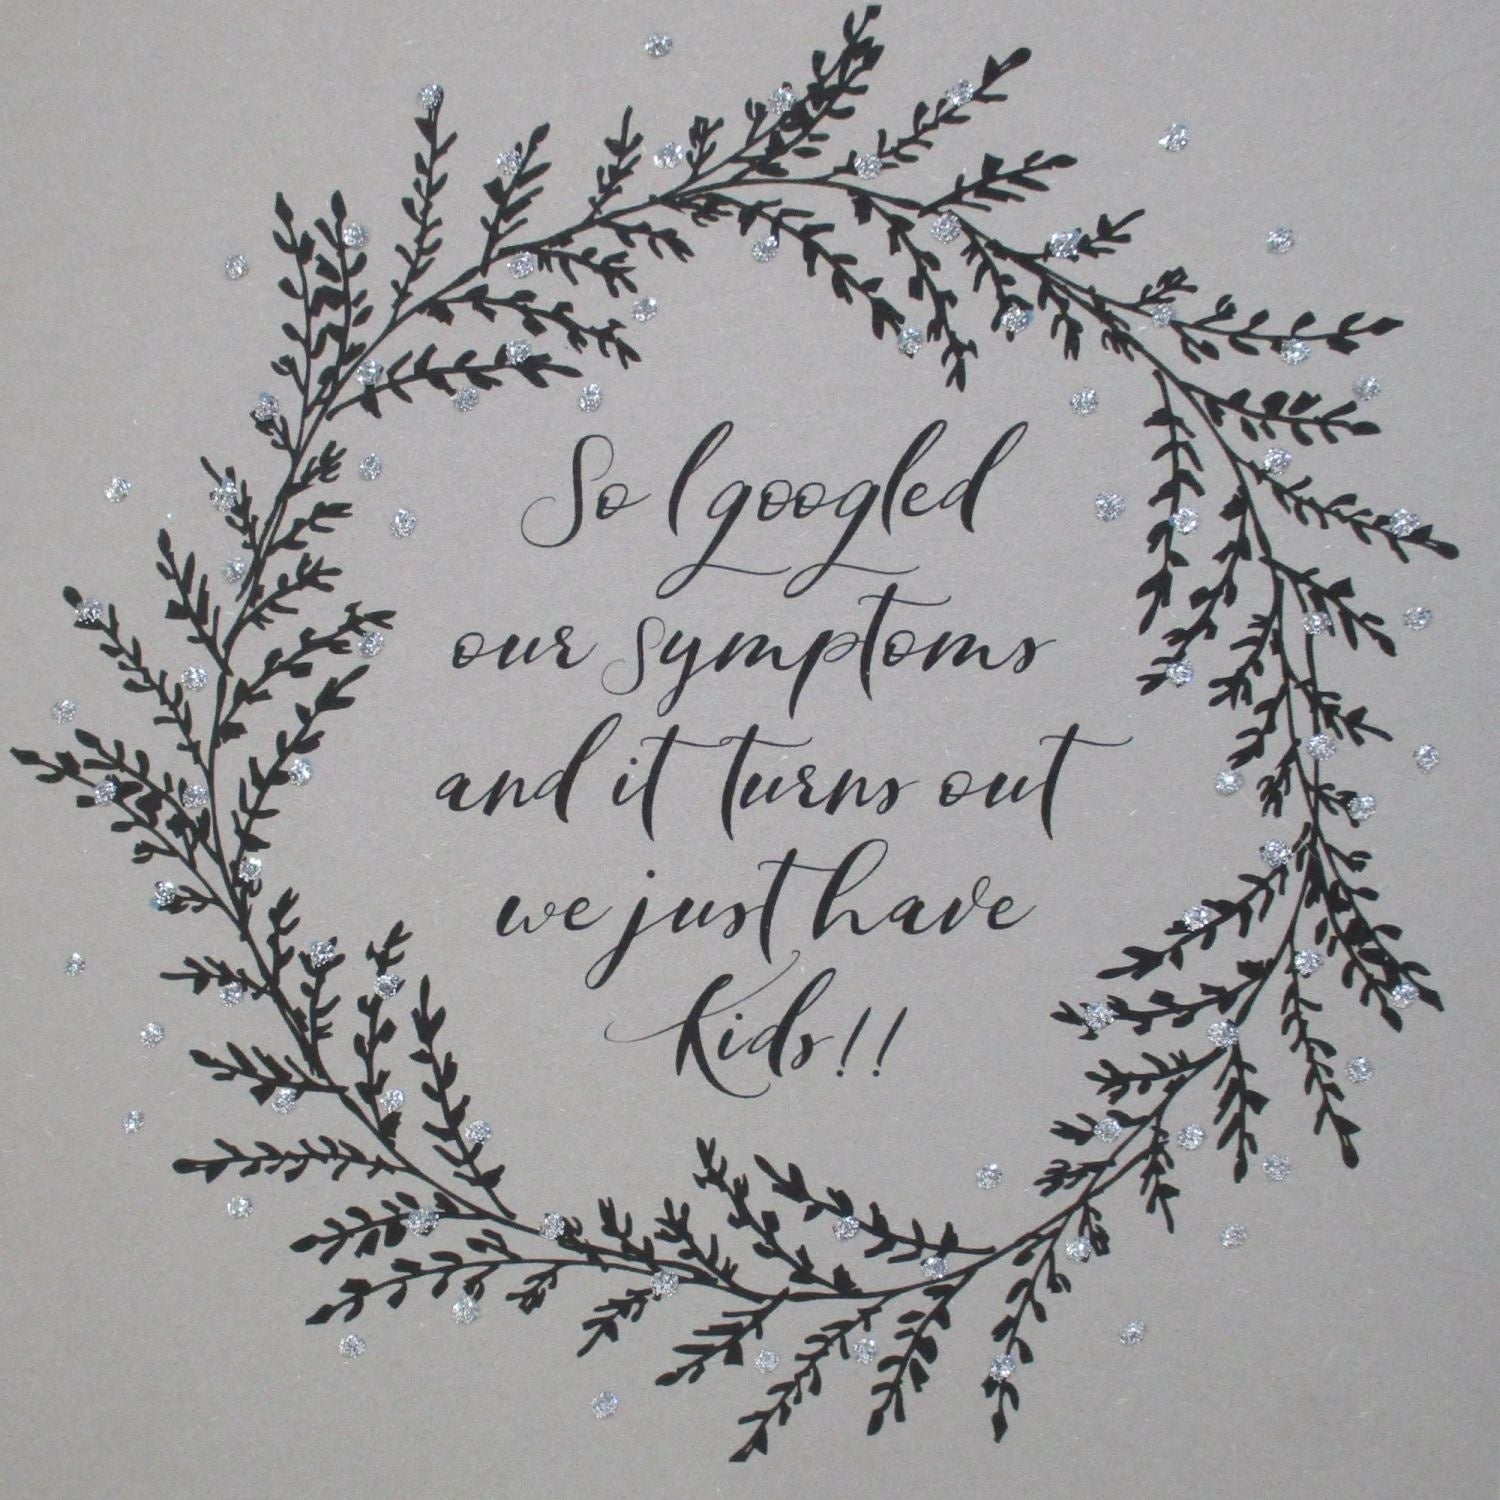 So I googled
our symptoms
and it turns out
we just have
Kids!!